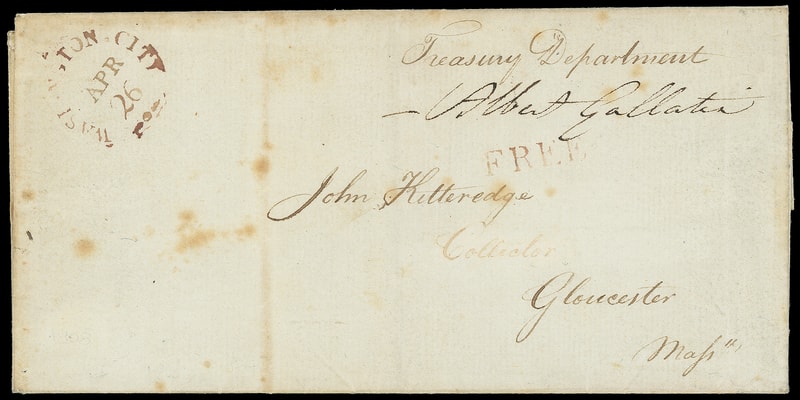 WASHINGTON CITY
APR
26
Treasury Department
— Albert Gallatin
FREE
John Kitteredge
Collector
Gloucester
Maſsts